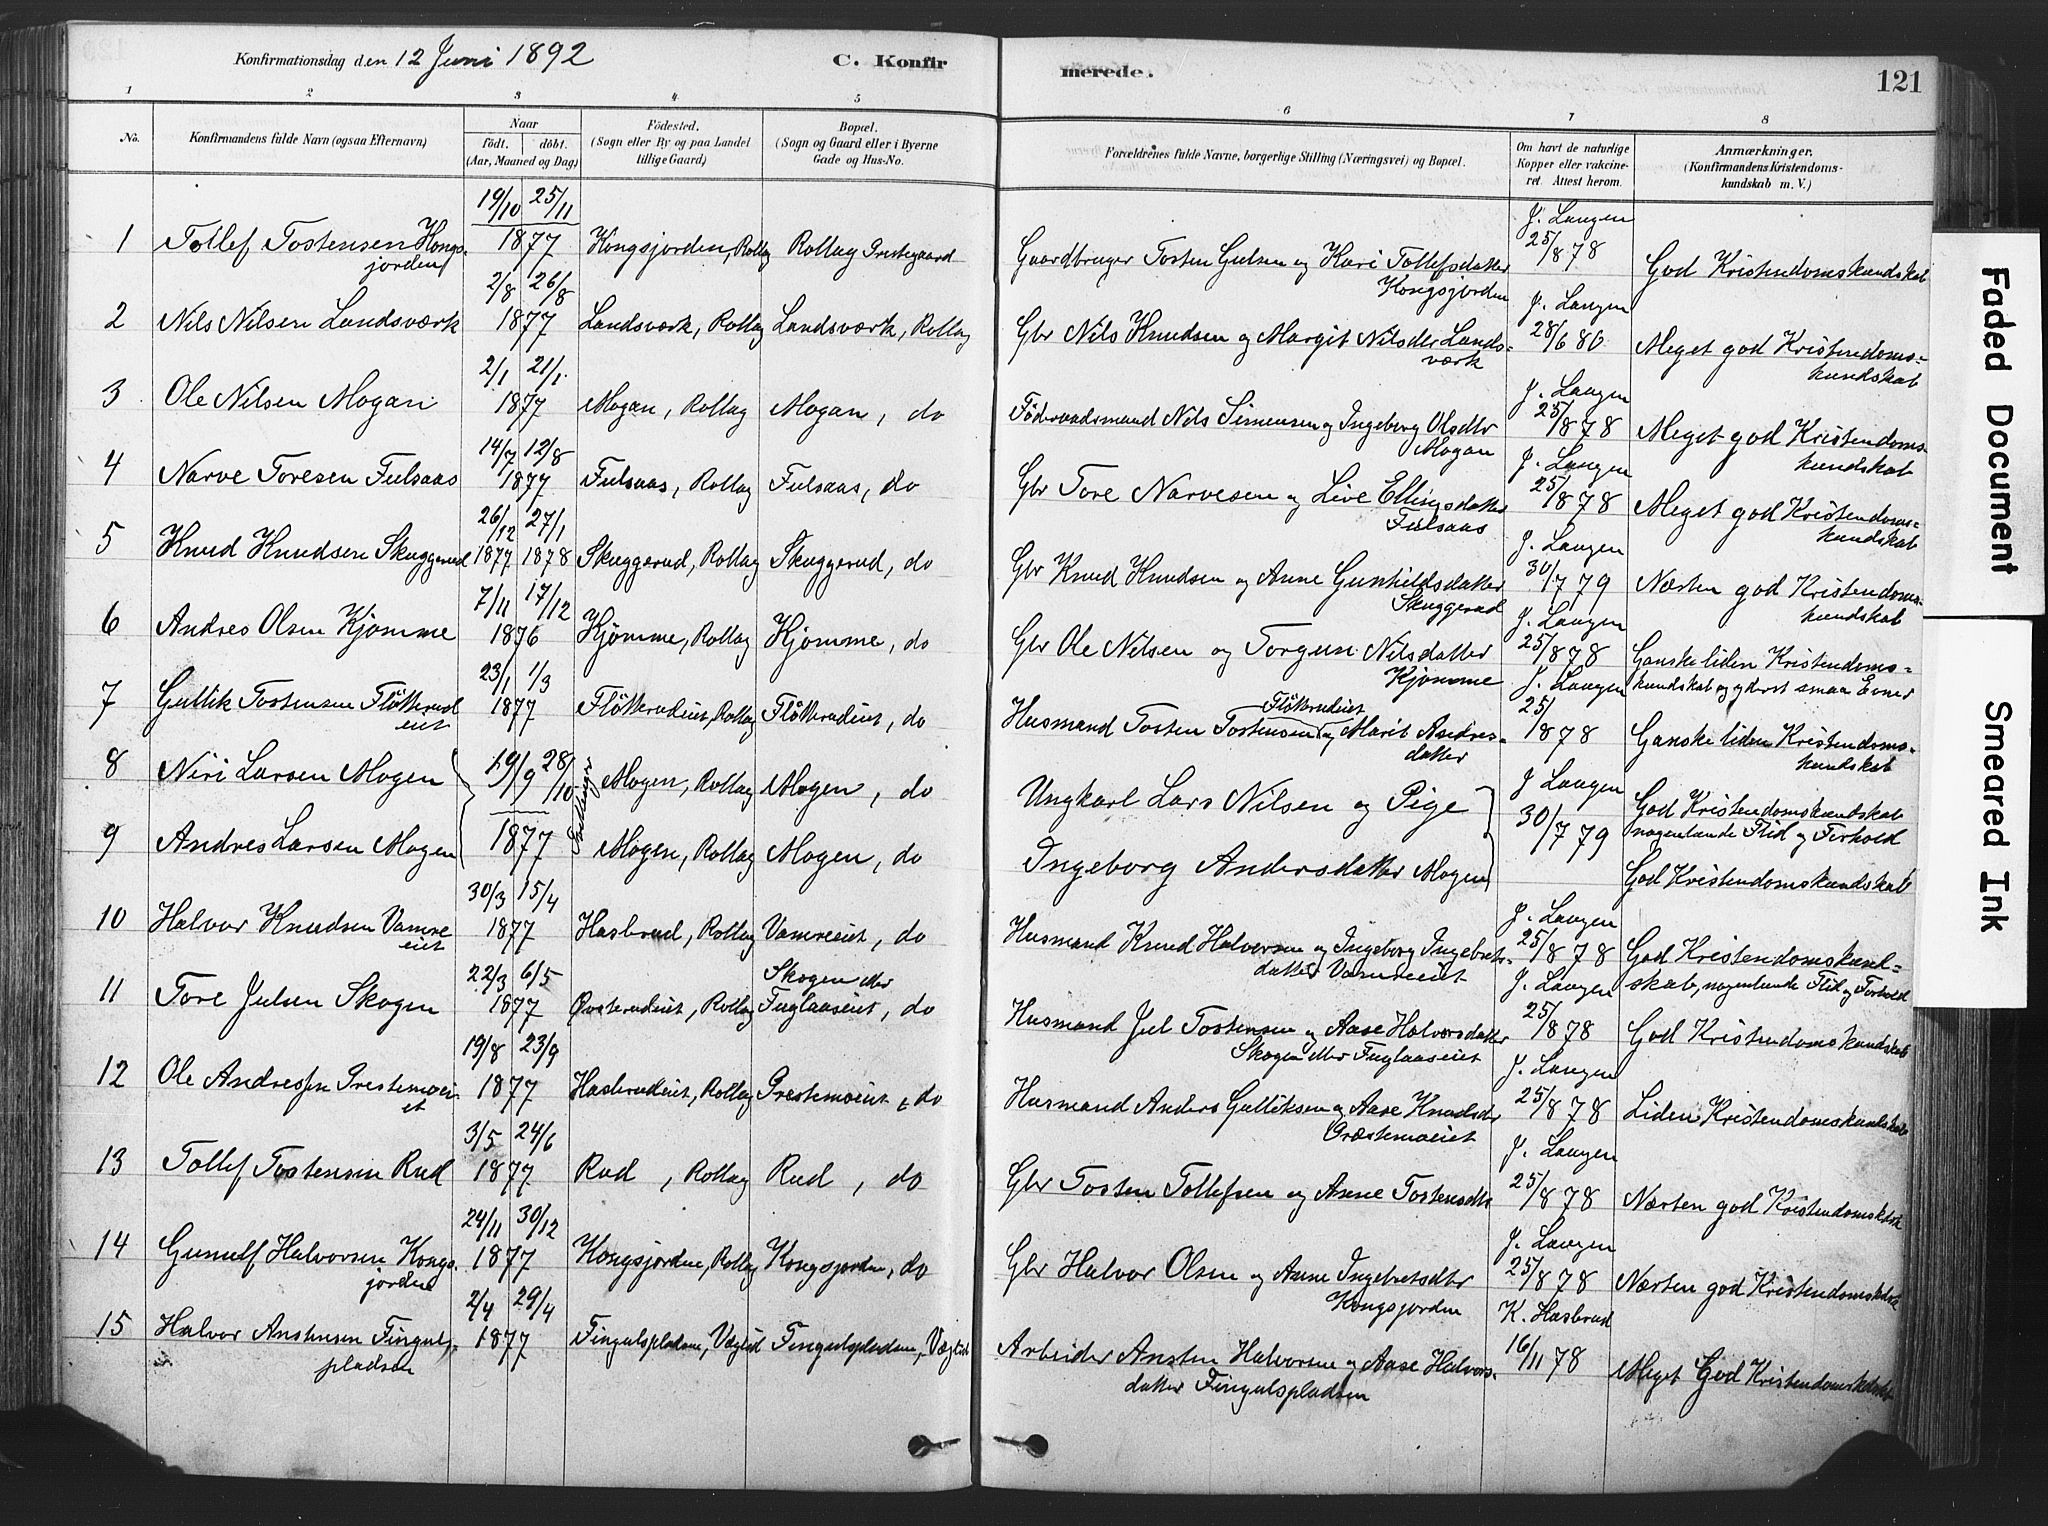 Konfirmationsdag den 12 Juni 1892
C. Konfirmerede.
121
1 2 3 4 5 6 7 8
No.
Konfirmandens fulde Navn (ogsaa Efternavn)
Naar
födt. döbt.
(Aar, Maaned og Dag)
Födested.
(Sogn eller By og paa Landet tillige Gaard)
Bopæl.
(Sogn og Gaard eller i Byerne Gade og Hus-No.
Forældrenes fulde Navne, borgerlige Stilling (Næringsvei) og Bopæl.
Om havt de naturlige Kopper eller vakcineret. Attest herom.
Anmærkninger.
(Konfirmandens Kristendomskundskab m. V.)
1 Tollef Tostensen Kongsjorden 19/10 25/11 1877 Kongsjorden, Rollag Rollag Prestegaard Gaardbruger Tosten Gulsen og Kari Tollefsdatter Kongsjorden J. Laugen 25/8 78 God Kristendomskundskab
2 Nils Nilsen Landsværk 2/8 26/8 1877 Landsværk, Rollag Landsværk, Rollag Gbr Nils Knudsen og Margit Nilsdtr Landsværk J. Laugen 28/6 80 Meget god Kristendomskundskab
3 Ole Nilsen Mogan 2/1 21/1 1877 Mogan, Rollag Mogan, do Föderaadsmand Nils Simensen og Ingeborg Olsdtr Mogan J. Laugen 25/8 78 Meget god Kristendomskundskab
4 Narve Toresen Fulsaas 14/7 12/8 1877 Fulsaas, Rollag Fulsaas, do Gbr Tore Narvesen og Live Ellingsdatter Fulsaas J. Laugen 25/8 78 Meget god Kristendomskundskab
5 Knud Knudsen Skuggerud 26/12 1877 27/1 1878 Skuggerud, Rollag Skuggerud, do Gbr Knud Knudsen og Anne Gunhildsdatter Skuggerud J. Laugen 30/7 79 Næsten god Kristendomskundskab
6 Andres Olsen Kjömme 7/11 17/12 1876 Kjömme, Rollag Kjömme, do Gbr Ole Nilsen og Torgun Nilsdatter Kjömme J. Laugen 25/8 78 Ganske liden Kristendomskundskab og yderst smaa Evner
7 Gullik Tostensen Flötterudeiet 23/1 1/3 1877 Flötterudeiet, Rollag Flötterudeiet, do Husmand Tosten Tostensen Flötterudeiet og Marit Andresdatter J. Laugen 25/8 78 Ganske liden Kristendomskundskab
8 Niri Larsen Mogen 19/9 28/10 Tvillinger Mogen, Rollag Mogen, do Ungkarl Lars Nilsen og Pige J. Laugen God Kristendomskundskab nogenlunde Flid og Forhold
9 Andres Larsen Mogen 1877 Mogen, Rollag Mogen, do Ingeborg Andersdatter Mogen 30/7 79 God Kristendomskundskab
10 Halvor Knudsen Vamreeiet 30/3 15/4 1877 Hasbrud, Rollag Vamreeiet, do Husmand Knud Halvorsen og Ingeborg Ingebretsdatter Vamreeiet J. Laugen 25/8 78 God Kristendomskundskab, nogenlunde Flid og Forhold
11 Tore Julsen Skogen 22/3 6/5 1877 Östrerudeiet, Rollag Skogen eller Fuglaaseiet, do Husmand Jul Tostensen og Aase Halvorsdatter Skogen eller Fuglaaseiet J. Laugen 25/8 78 God Kristendomskundskab
12 Ole Andresen Prestemoeiet 19/8 23/9 1877 Hasbrudeiet, Rollag Prestemoeiet, do Husmand Anders Gulliksen og Aase Knudsdtr Præstemoeiet J. Laugen 25/8 78 Liden Kristendomskundskab
13 Tollef Tostensen Rud 3/5 24/6 1877 Rud, Rollag Rud, do Gbr Tosten Tollefsen og Anne Tostensdtr J. Laugen 25/8 78 Næsten god Kristendomskdsk
14 Gunulf Halvorsen Kongsjorden 24/11 30/12 1877 Kongsjorden, Rollag Kongsjorden, do Gbr Halvor Olsen og Anne Ingebretsdtr Kongsjorden J. Laugen 25/8 78 Næsten god Kristendomskdsk
15 Halvor Anstensen Fingulspladsen 2/4 29/4 1877 Fingulspladsen, Væglid Fingulspladsen, Væglid Arbeider Ansten Halvorsen og Aase Halvorsdatter Fingulspladsen K. Hasbrud 16/11 78 Meget God Kristendomskdskb
Faded Document
Smeared Ink